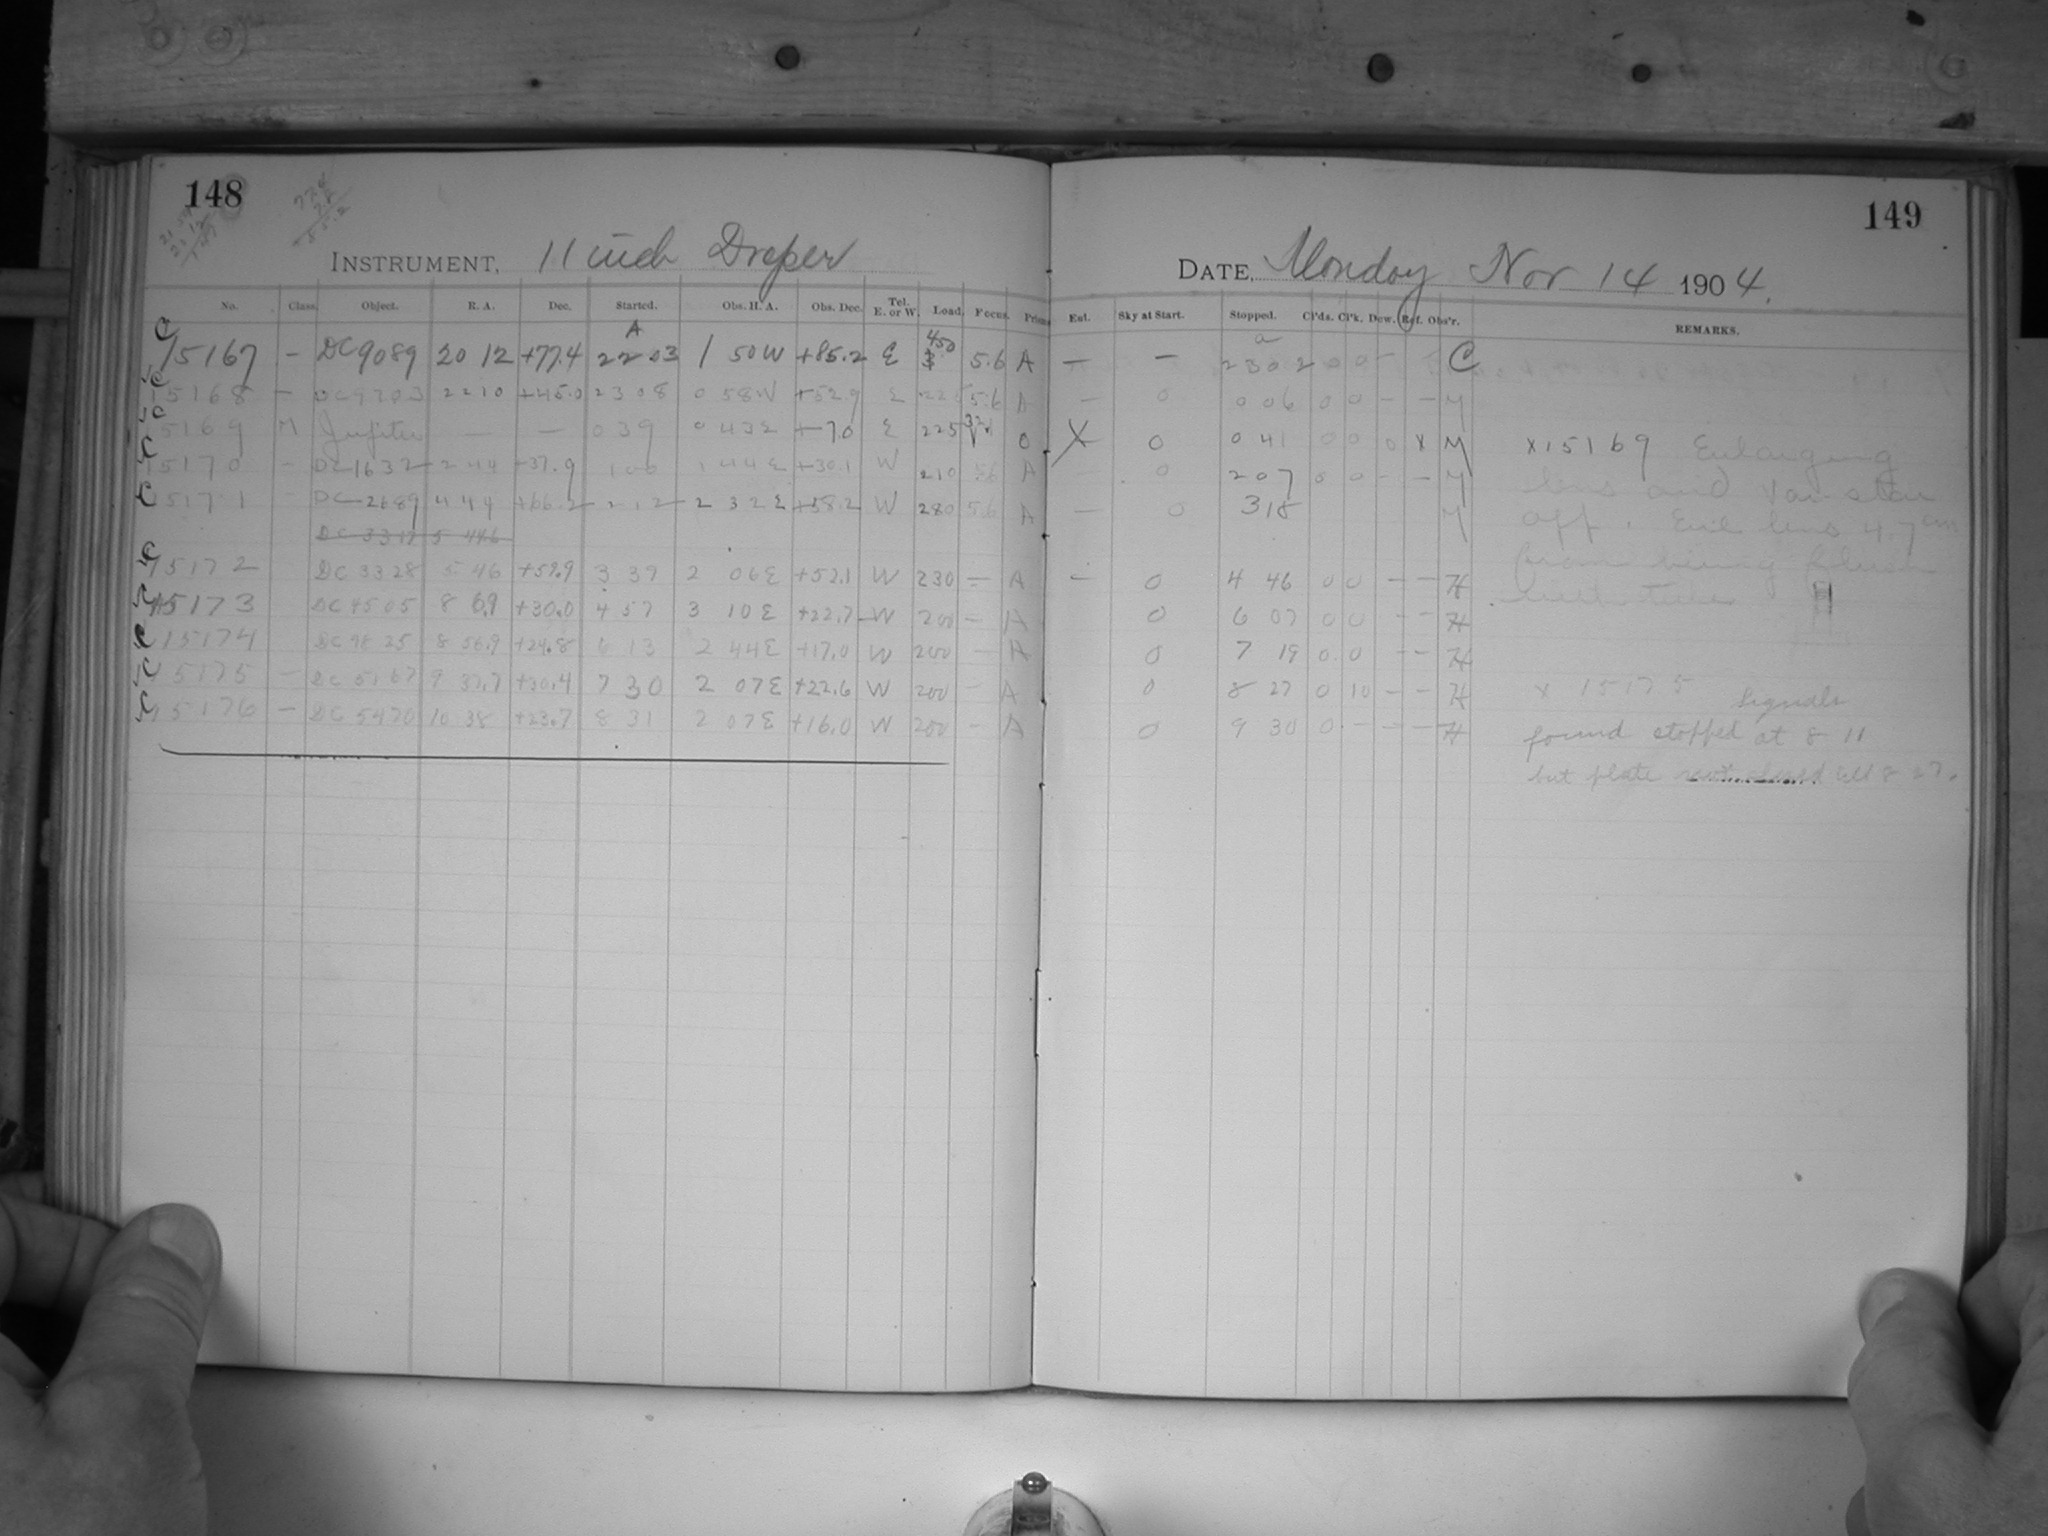 148
149
INSTRUMENT, 11 inch Draper
DATE, Monday Nov 14 1904.
No. Class. Object. R. A. Dec. Started. Obs. H. A. Obs. Dec. Tel. E. or W. Load. Focus. Prisms
Ent. Sky at Start. Stopped. Cl'ds. Cl'k. Dew. Ref. Obs'r. REMARKS.
C 15167 – DC 9089 20 12 +77.4 A 22 03 1 50W +85.2 E 450 5.6 A — — a 23 02 0 0 – C
C 15168 – DC 9703 22 10 +45.0 23 08 0 58W +52.9 E 5.6 A – 0 0 06 0 0 – – M
C 15169 M Jupiter — — 0 39 0 43E +7.0 E 225 0 X 0 0 41 0 0 0 x M x 15169 Enlarging
C 15170 – DC 1632 2 44 +37.9 1 00 1 44E +30.1 W 210 5.6 A 0 2 07 0 0 – – M lens and
C 15171 – DC 2689 4 44 +66.2 2 12 2 32E +58.2 W 280 5.6 A — 0 3 18 M off. Eul lens 4.7 cm
DC 3317 5 44.6 from being flush
C 15172 DC 3328 5 46 +59.9 3 39 2 06E +52.1 W 230 – A – 0 4 46 0 0 – – H with
C 15173 DC 4505 8 6.9 +30.0 4 57 3 10E +22.7 W 200 – A 0 6 07 0 0 – – H
C 15174 DC 4825 8 56.9 +24.8 6 13 2 44E +17.0 W 200 – A 0 7 19 0 0 – – H
C 15175 – DC 5167 9 37.7 +30.4 7 30 2 07E +22.6 W 200 – A 0 8 27 0 10 – – H x 15175 Signals
C 15176 – DC 5470 10 38 +23.7 8 31 2 07E +16.0 W 200 – A 0 9 30 0 – – – H found stopped at 8 11
but plate not closed till 8 27.